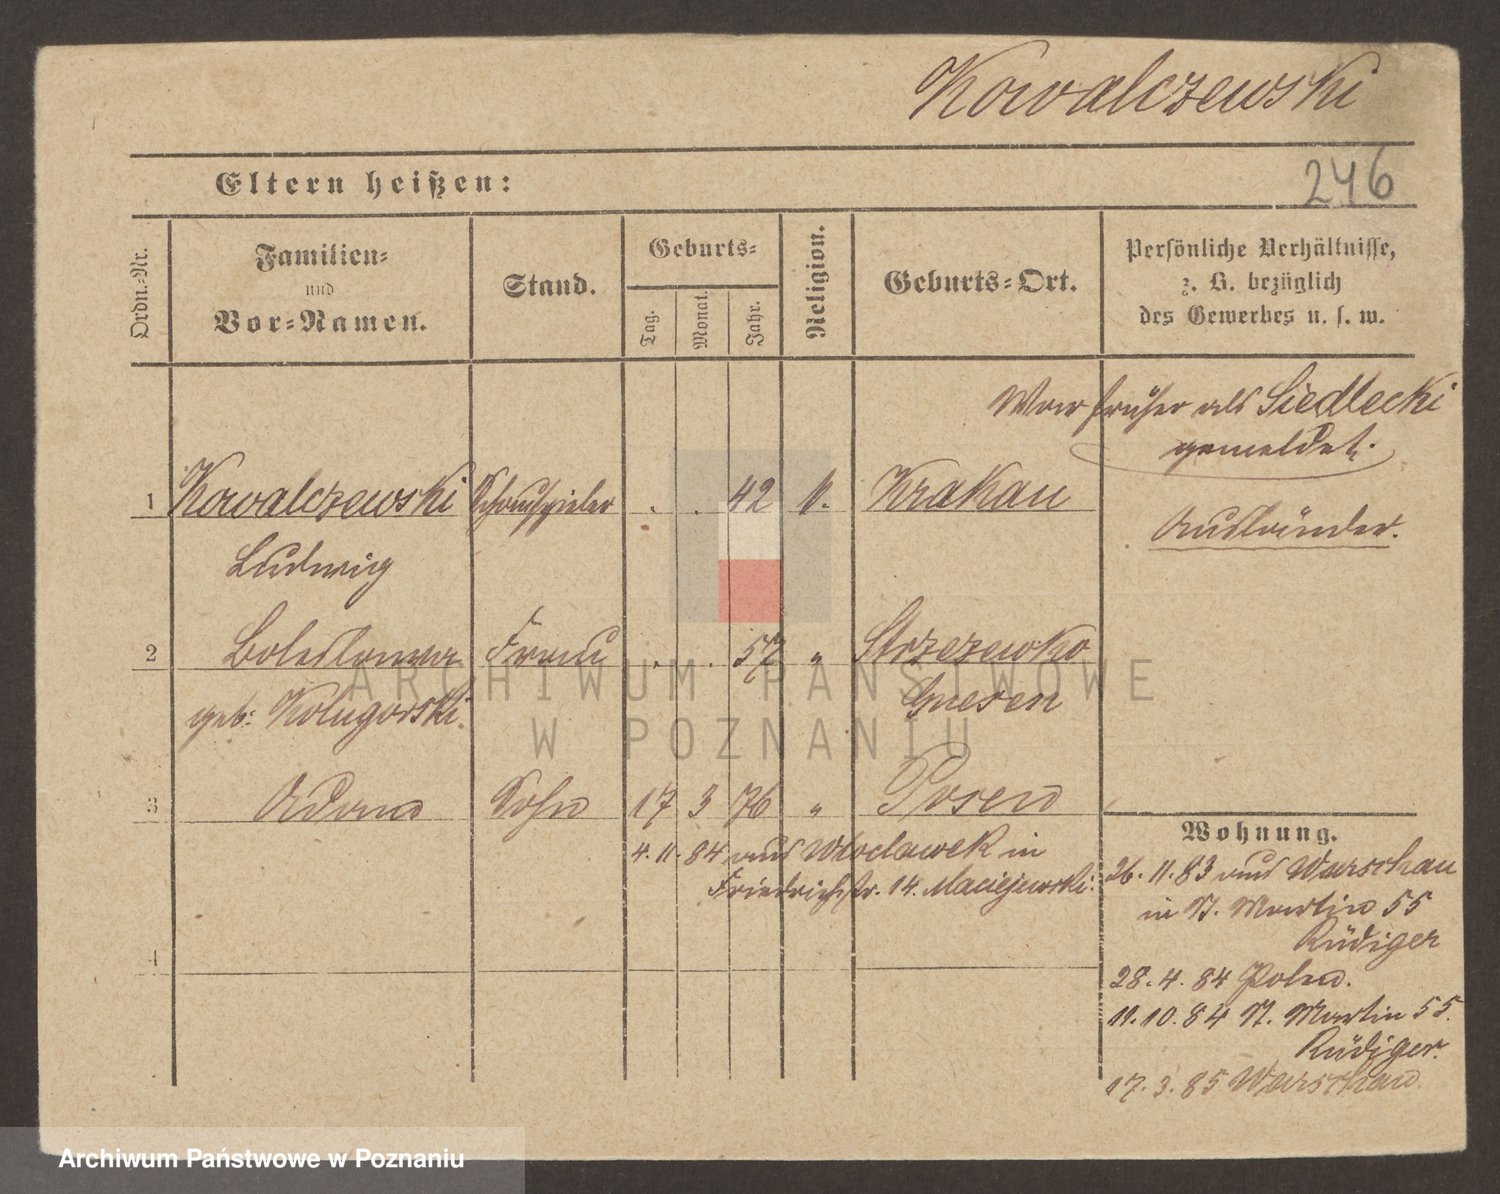 Kowalczewski
246
Eltern heißen:
Ordn.-Nr.
Familien-
und
Vor-Namen.
Stand.
Geburts-
Tag.
Monat.
Jahr.
Religion.
Geburts-Ort.
Persönliche Verhältnisse,
z. B. bezüglich
des Gewerbes u. s. w.
War früher als Siedlecki
gemeldet.
1 Kowalczewski Schauspieler . . 42 k. Krakau
Ausländer.
Ludwig
2 Boleslawa Frau . . 57 " Strzezewko
geb: Kolugorski. Gnesen
3 Adam Sohn 17 3 76 " Posen
4. 11. 84 aus Wloclawek in
Friedrichstr. 14. Maciejewski:
4
Wohnung.
26. 11. 83 aus Warschau
in St. Martin 55
Rüdiger
28. 4. 84 Polen.
11. 10. 84 St. Martin 55.
Rüdiger.
17. 3. 85 Warschau.
ARCHIWUM PAŃSTWOWE
W POZNANIU
Archiwum Państwowe w Poznaniu